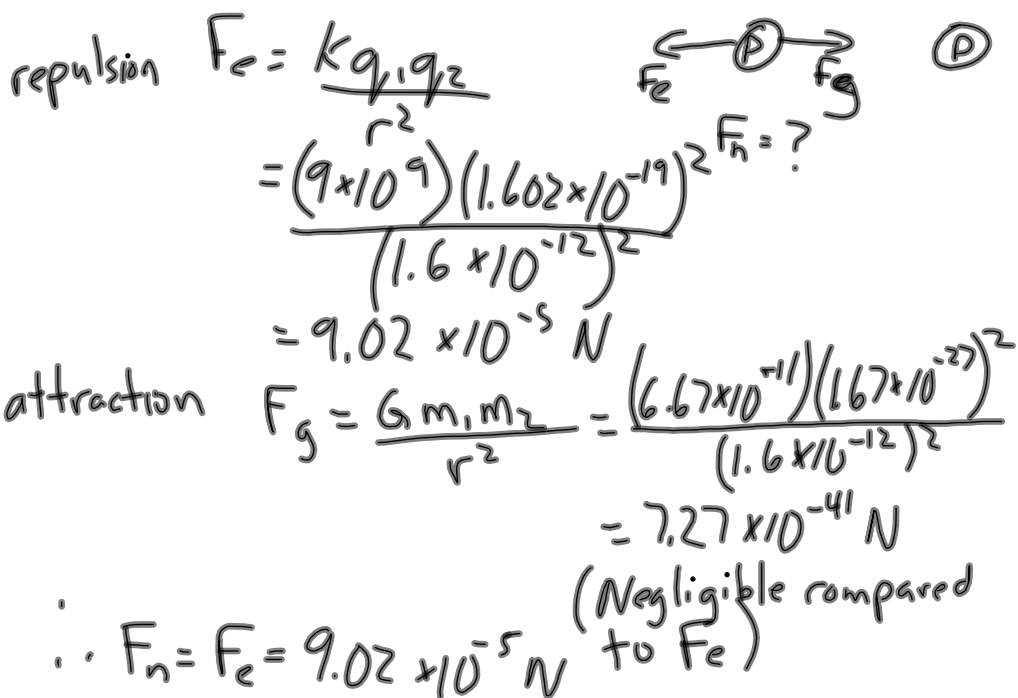 repulsion Fₑ = Kq₁q₂ / r²
Fₑ P F_g P
Fₙ = ?
= (9×10⁹)(1.602×10⁻¹⁹)² / (1.6×10⁻¹²)²
= 9.02 ×10⁻⁵ N
attraction F_g = Gm₁m₂ / r² = (6.67×10⁻¹¹)(1.67×10⁻²⁷)² / (1.6×10⁻¹²)²
= 7.27 ×10⁻⁴¹ N
(Negligible compared
to Fₑ)
∴ Fₙ = Fₑ = 9.02 ×10⁻⁵ N